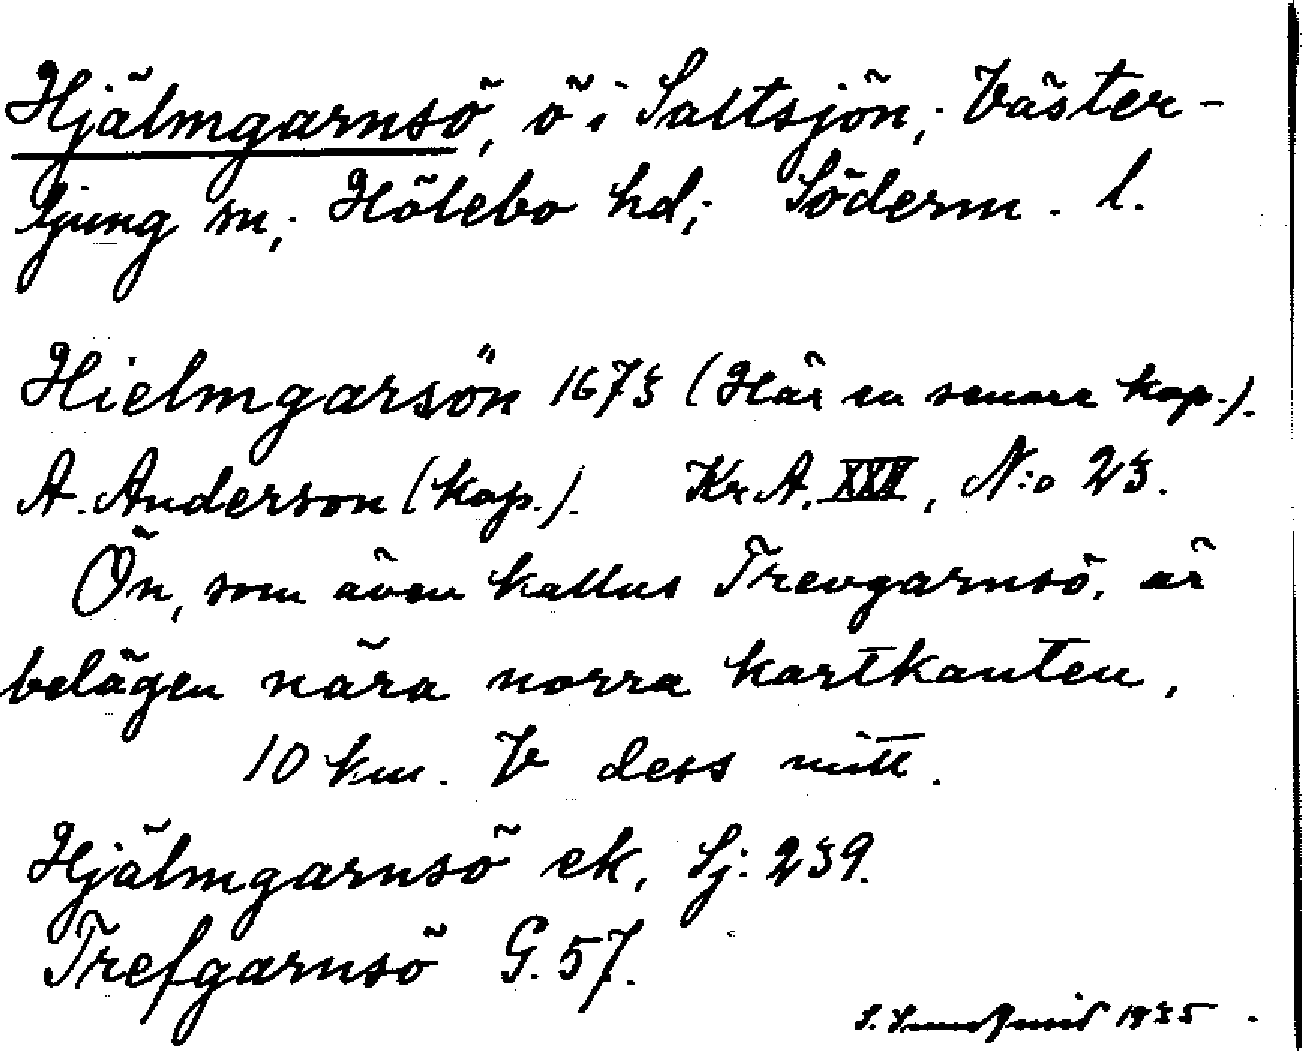 Hjälmgarnsö, ö i Saltsjön; Väster-
ljung sn; Hölebo hd; Söderm. l.
Hielmgarsön 1673 (Här en senare kop.).
A. Anderson (kop.). Kr. A. XXV, N:o 23.
Ön, som även kallas Trevgarnsö, är
belägen nära norra kartkanten,
10 km. V dess mitt.
Hjälmgarnsö ek, Sj: 239.
Trefgarnsö G. 57.
S. 1935